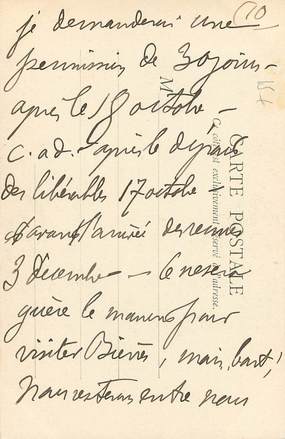 (10)
je demanderai une
permission de 30 jours -
après le 18 octobre -
c. a d. - après le départ
des libérables 17 octobre -
& avant l'arrivée des recrues
3 décembre - - Ce ne sera
guère le moment pour
visiter Bièvres, mais, baste !
nous resterons entre nous
CARTE POSTALE
Ce côté est exclusivement réservé à l'adresse.
M